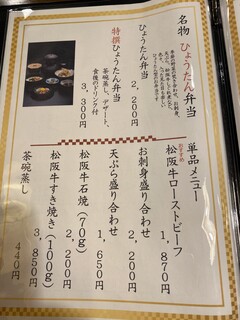 名物 ひょうたん弁当
ひょうたん弁当
2,200円
特撰ひょうたん弁当
茶碗蒸し、デザート、
食後のドリンク付
3,300円
単品メニュー
おすすめ
松阪牛ローストビーフ
1,870円
お刺身盛り合わせ
2,200円
天ぷら盛り合わせ
1,650円
松阪牛石焼(70g)
2,200円
松阪牛すき焼き(100g)
3,850円
茶碗蒸し
440円